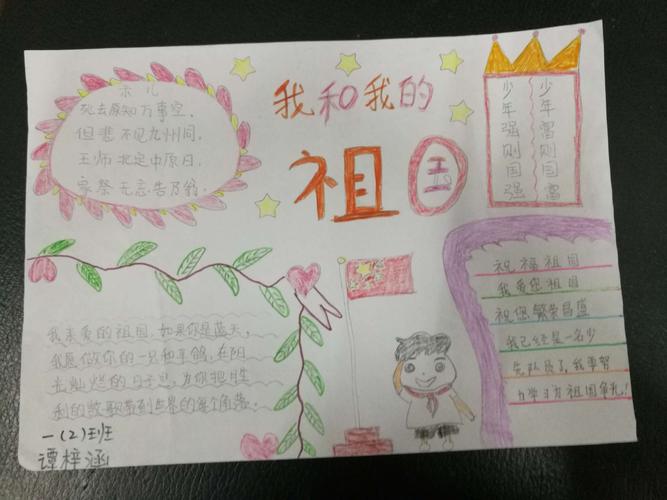 我和我的
祖国
示儿
死去原知万事空,
但悲不见九州同,
王师北定中原日,
家祭无忘告乃翁。
少年富则国富
少年强则国强
我亲爱的祖国,如果你是蓝天,
我愿做你的一只和平鸽,在阳
光灿烂的日子里,为你把胜
利的歌带到世界的每个角落。
祝福祖国
我爱您祖国
祝您繁荣昌盛
我已经是一名少
先队员了,我要努
力学习为祖国争光!
一(2)班
谭梓涵